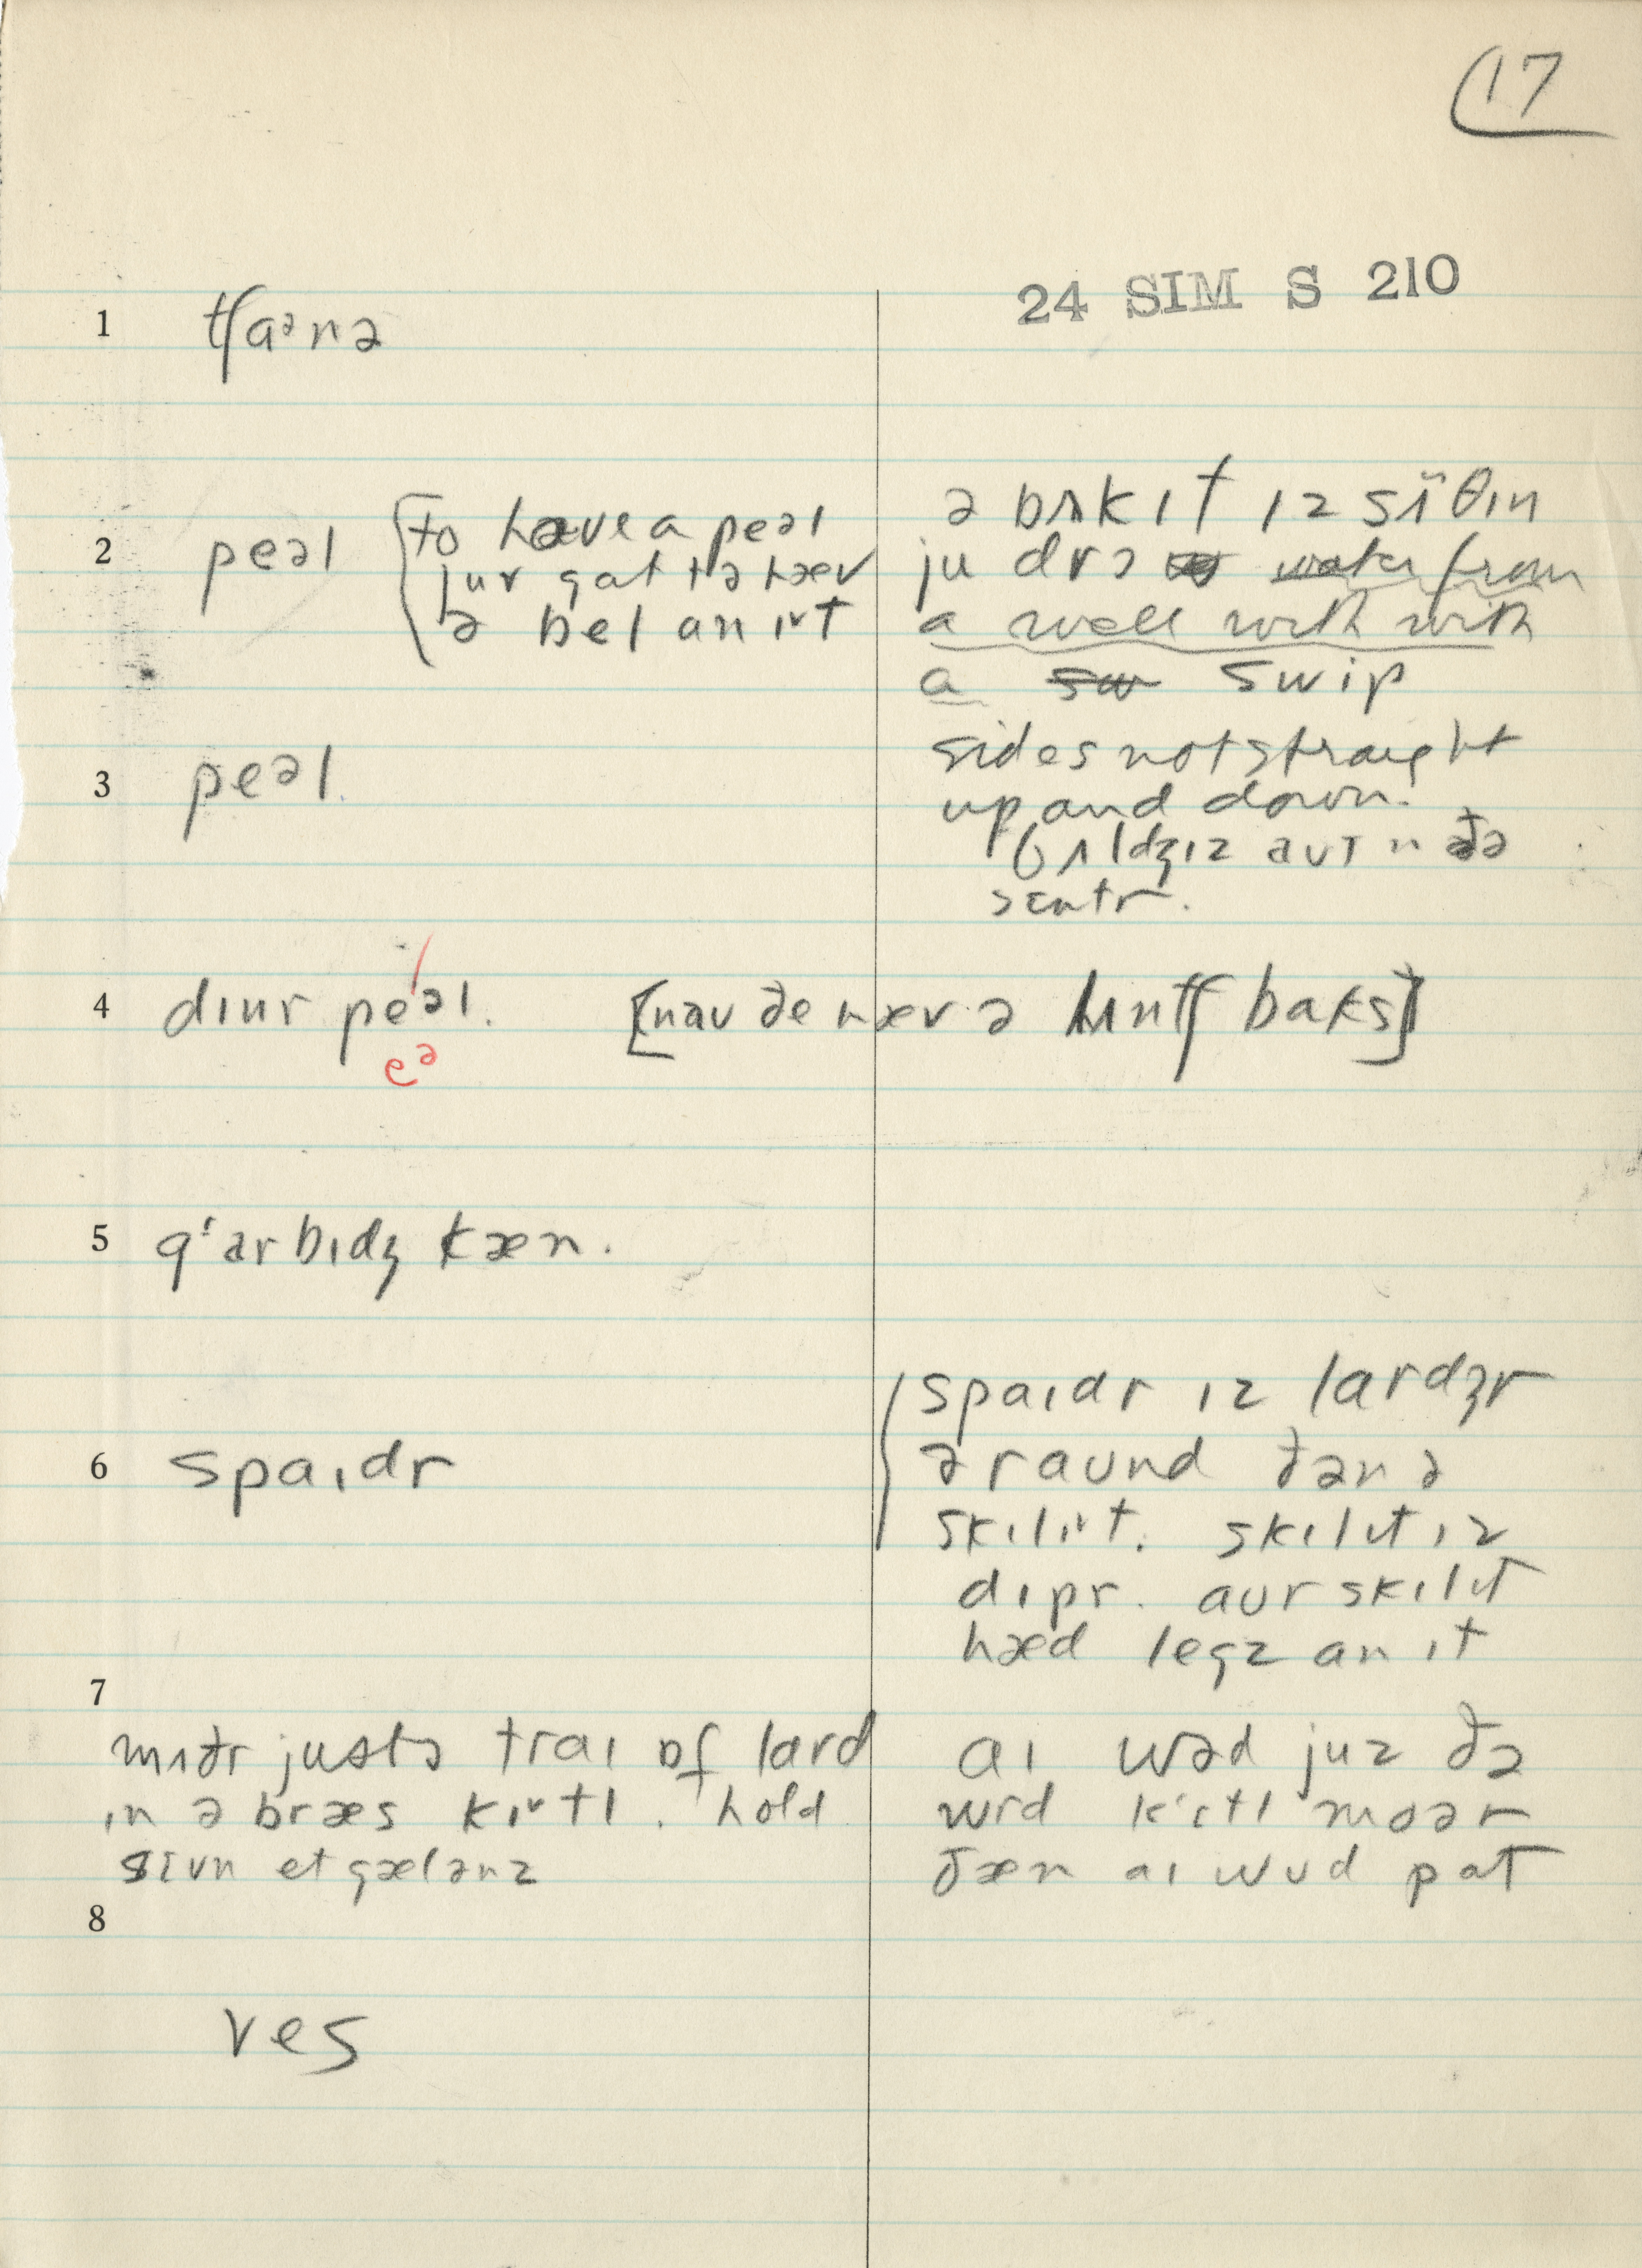 17
24 SIM S 210
1 tʃaᵊnə
2 peəl
to have a peəl
jur gat tə hæv
ə bel an ɪᵛt
ə bʌkɪt ɪz
ju drɔ water from
a well with with
a sw swip
3 peəl.
sides not straight
up and down.
bʌldʒɪz aut n ðə
sɛntr.
4 dɪnr peəl. [nau ðe hæv ə lʌntʃ baks]
eᵊ
5 g'arbɪdʒ kæn.
6 spaɪdr
spaɪdr ɪz lardʒr
əraund ðən ə
skɪlɪᵛt. skɪlɪt ɪz
dɪpr. aur skɪlɪt
hæd legz an ɪt
7
mʌðr justə traɪ of lard
in ə bræs kɪᵛtl. hold
sɛvn et gælənz
aɪ wəd juz ðə
wrd kɪtl moər
ðæn aɪ wud pat
8
ves